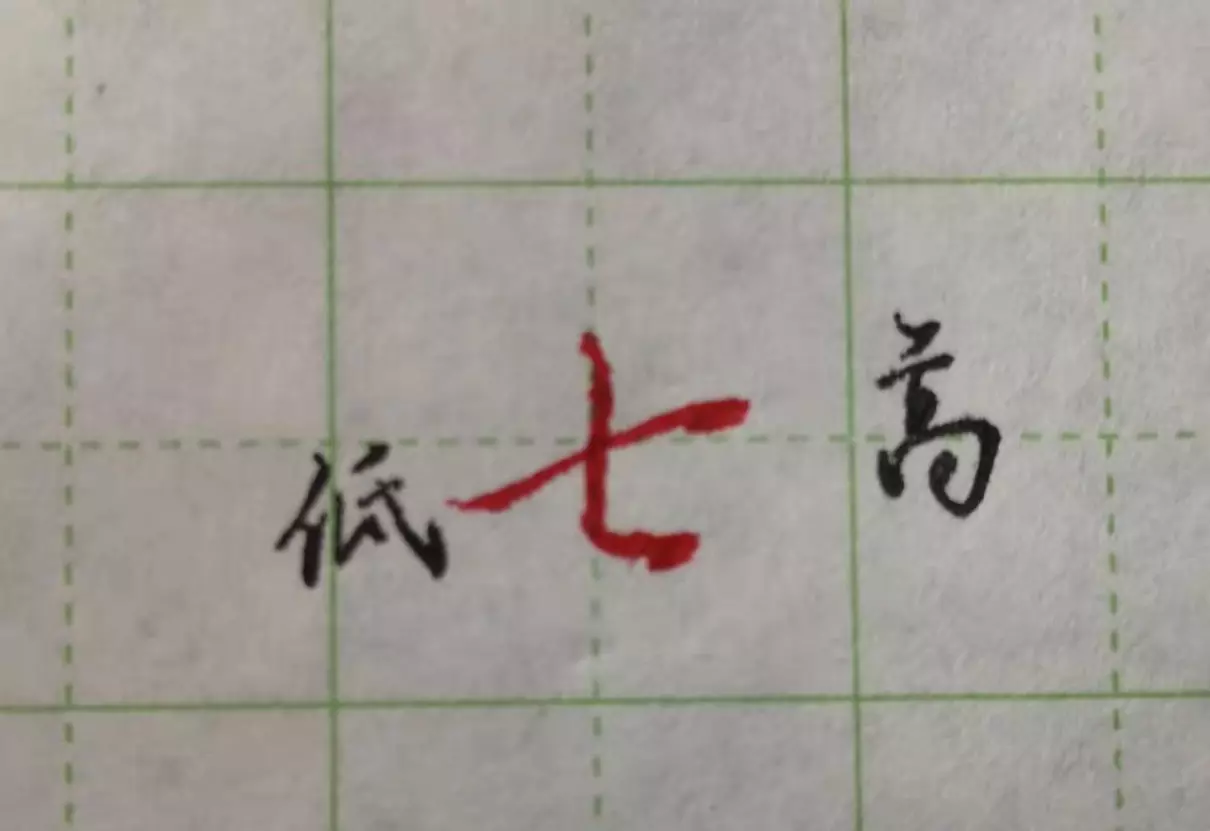 低七高